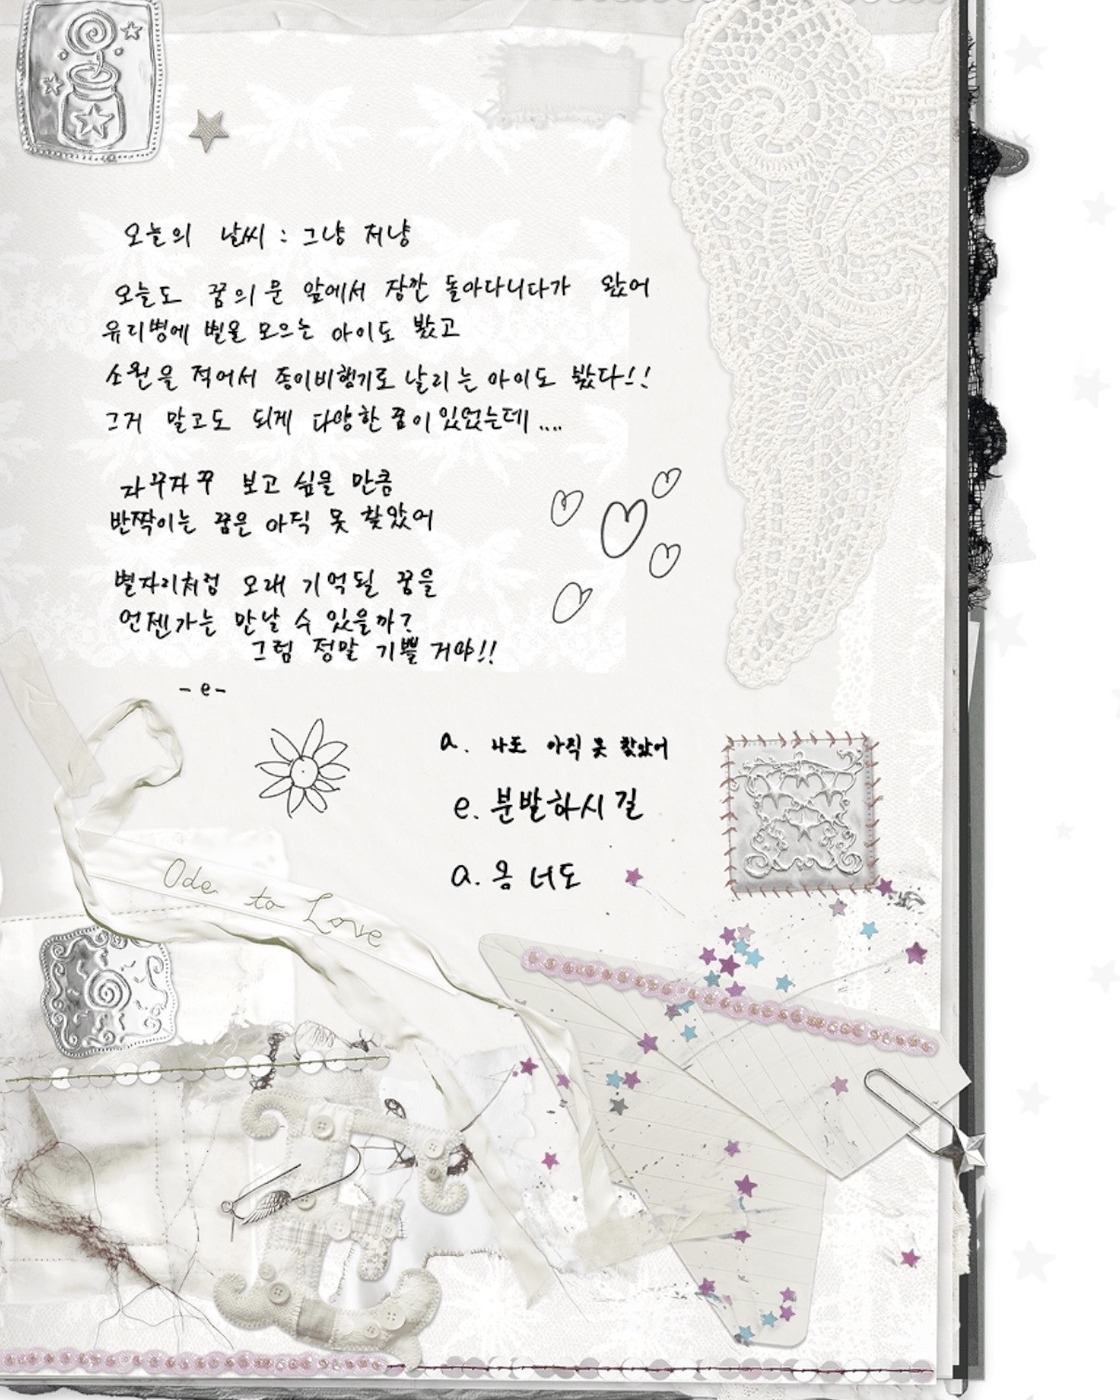 오늘의 날씨 : 그냥 저냥
오늘도 꿈의 문 앞에서 잠깐 돌아다니다가 왔어
유리병에 별을 모으는 아이도 봤고
소원을 적어서 종이비행기로 날리는 아이도 봤다!!
그거 말고도 되게 다양한 꿈이 있었는데....
자꾸자꾸 보고 싶을 만큼
반짝이는 꿈은 아직 못 찾았어
별자리처럼 오래 기억될 꿈을
언젠가는 만날 수 있을까?
그럼 정말 기쁠 거야!!
-e-
a. 나도 아직 못 찾았어
e. 분발하시길
a. 응 너도
Ode to Love